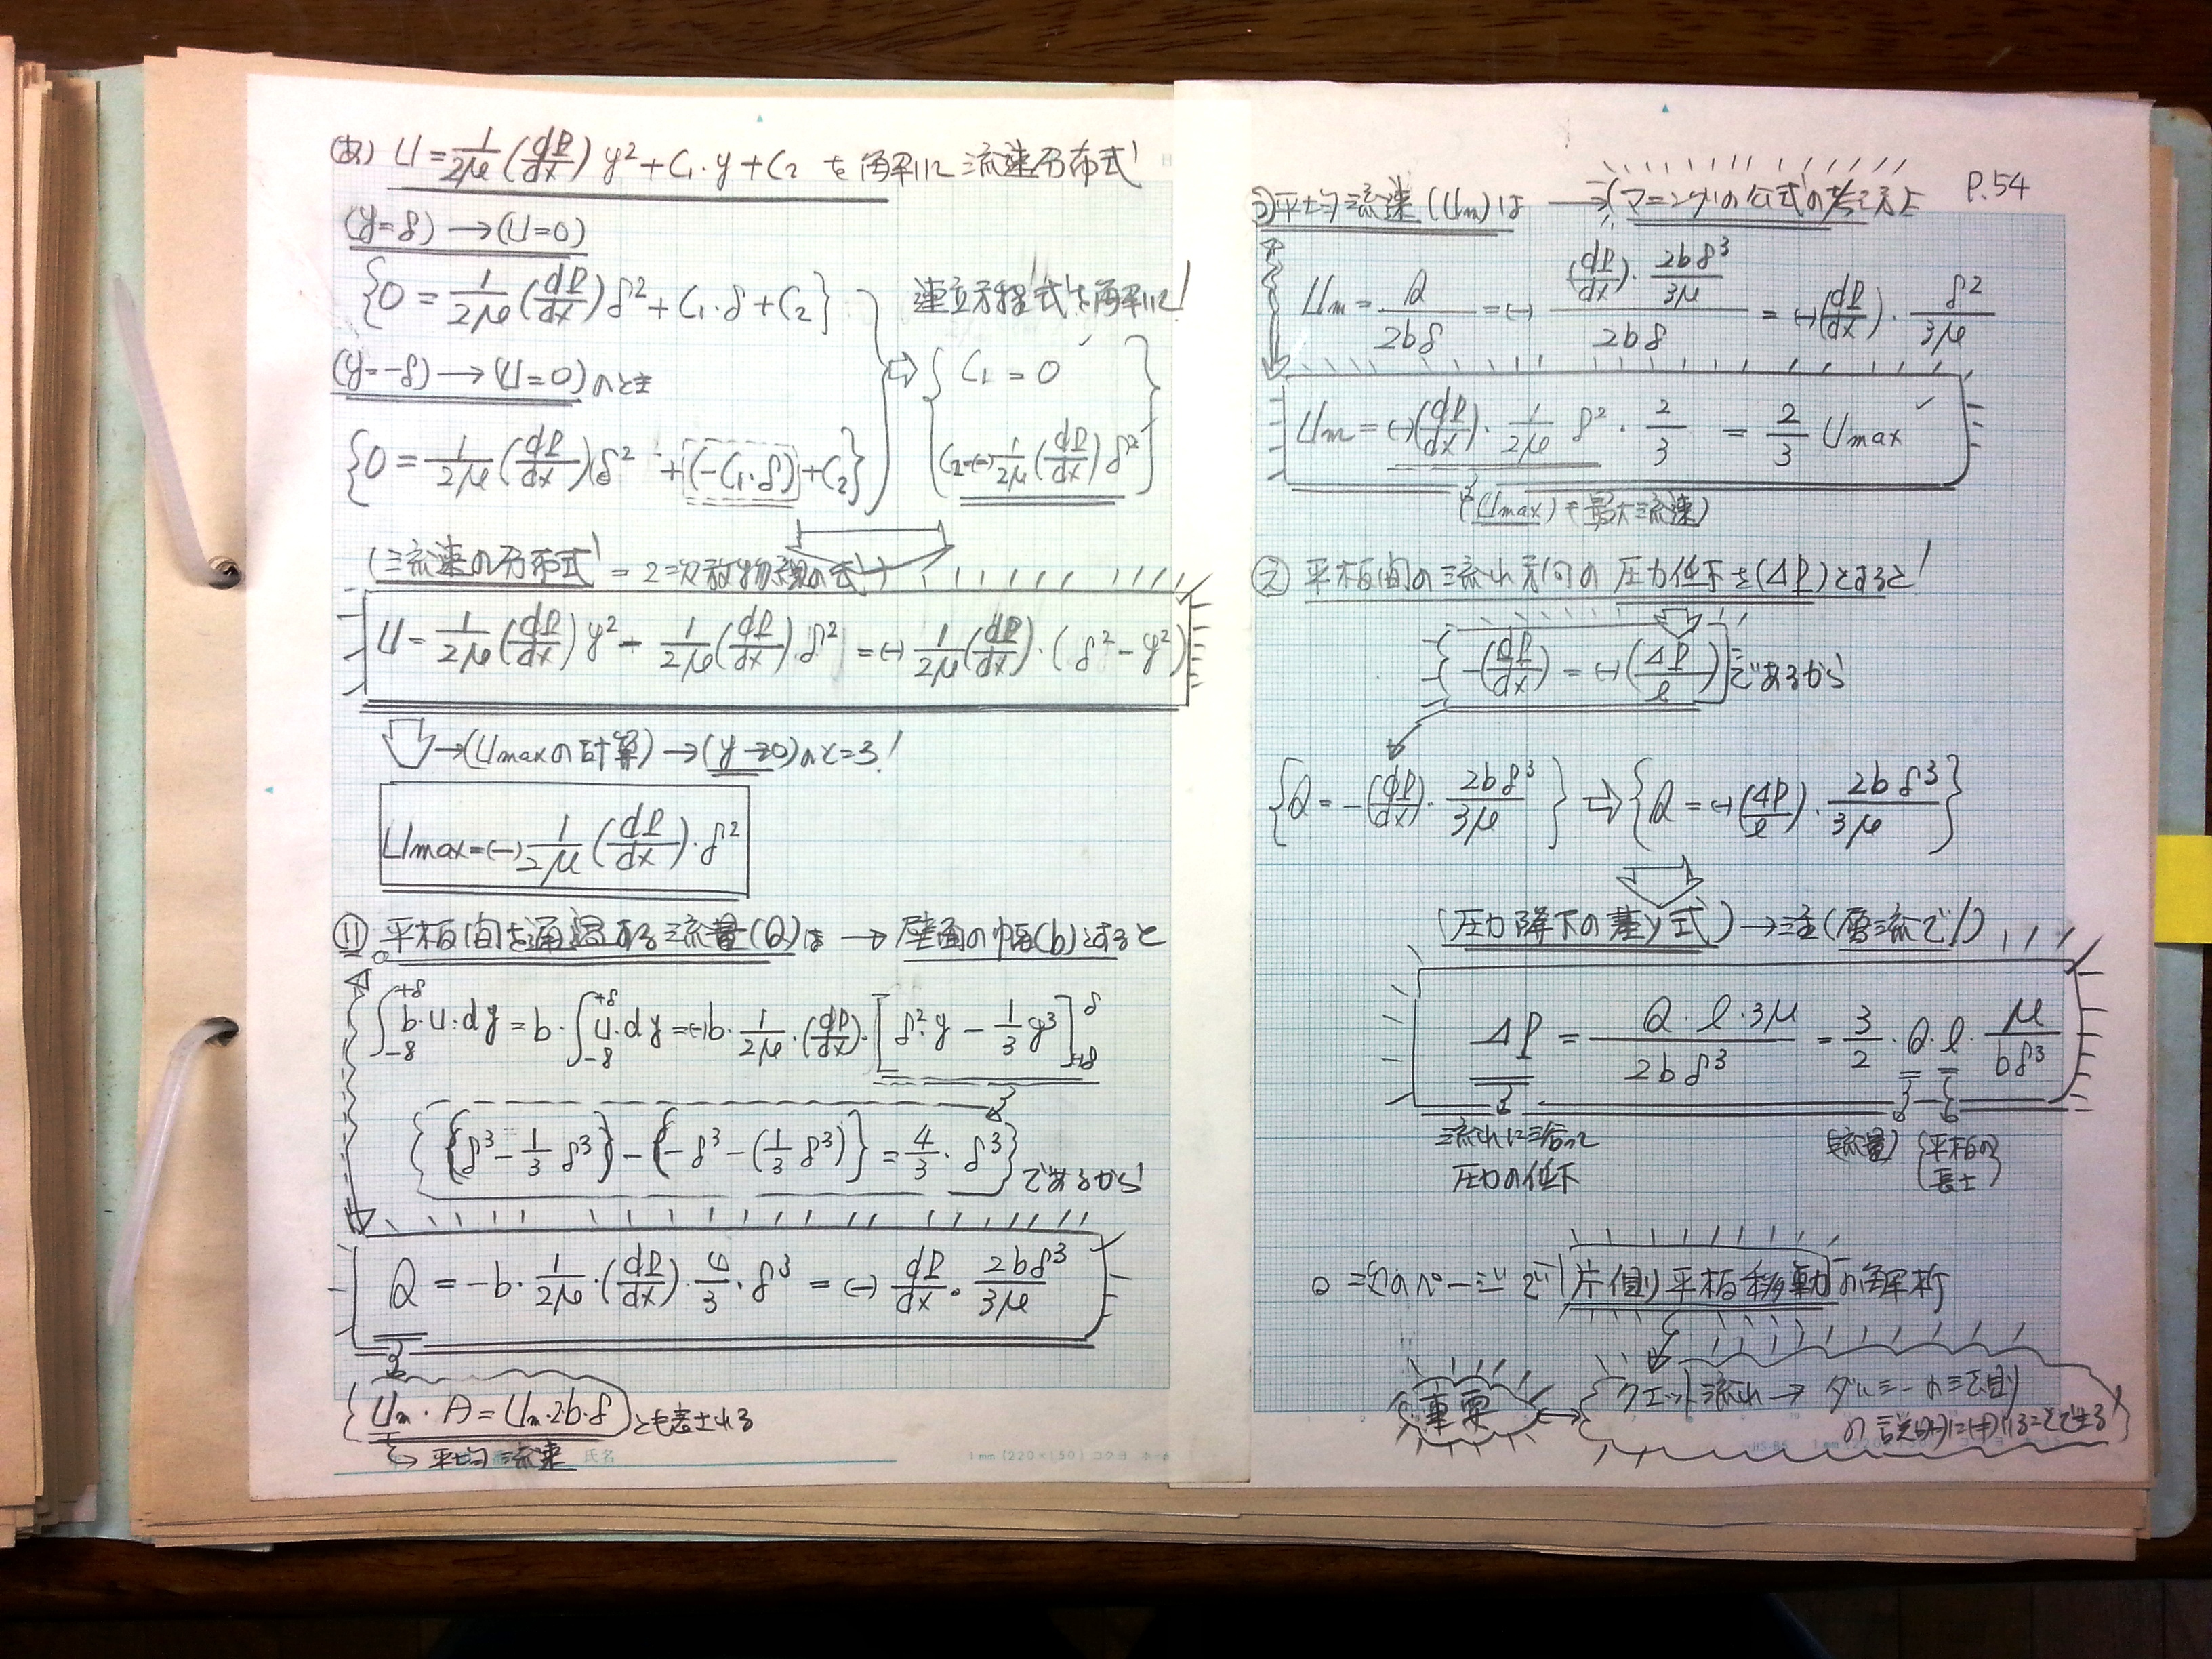 (あ) U = 1/2μ (dP/dx) y² + C₁・y + C₂ を解いて 流速分布式!
(y=δ) → (U=0)
{0 = 1/2μ (dP/dx) δ² + C₁・δ + C₂}
連立方程式を解いて!
(y=-δ) → (U=0) のとき
{0 = 1/2μ (dP/dx) δ² + (-C₁・δ) + C₂}
⇨ { C₁ = 0
C₂=(-) 1/2μ (dP/dx) δ² }
(流速の分布式 = 2次放物線の式)
U = 1/2μ (dP/dx) y² - 1/2μ (dP/dx)・δ² = (-) 1/2μ (dP/dx)・(δ² - y²)
→ (Umaxの計算) → (y→0) のところ!
Umax = (-) 1/2μ (dP/dx)・δ²
(い) 平板間を通過する流量(Q)は → 壁面の幅(b)とすると
∫₋δ⁺δ b・u・dy = b・∫₋δ⁺δ u・dy = (-)b・1/2μ・(dP/dx)・[δ²・y - 1/3 y³]
{(δ³ - 1/3 δ³) - (-δ³ - (1/3 δ³)} = 4/3・δ³} であるから
Q = -b・1/2μ・(dP/dx)・4/3・δ³ = (-) dP/dx・2bδ³/3μ
Um・A = Um・2b・δ とも表される
→ 平均流速
氏名
1mm (220×150) コクヨ
P.54
う) 平均流速 (Um) は → (マニングの公式の考え方
Um = Q/2bδ = (-) (dP/dx)・2bδ³/3μ / 2bδ = (-)(dP/dx)・δ²/3μ
Um = (-)(dP/dx)・1/2μ δ²・2/3 = 2/3 Umax
(Umax) を最大流速)
(え) 平板間の流れ方向の圧力低下を(ΔP)とすると!
{-(dP/dx) = (-)(ΔP/ℓ)} であるから
{Q = -(dP/dx)・2bδ³/3μ} ⇨ {Q = (-)(ΔP/ℓ)・2bδ³/3μ}
(圧力降下の基本式) → 注(層流で!)
ΔP = Q・ℓ・3μ/2bδ³ = 3/2・Q・ℓ・μ/bδ³
流れに沿って
圧力の低下
(流量)
{平板の
長さ}
○ 次のページで 片側平板移動の解析
重要 ↔ クエット流れ → ダルシーの法則
の説明に用いることができる